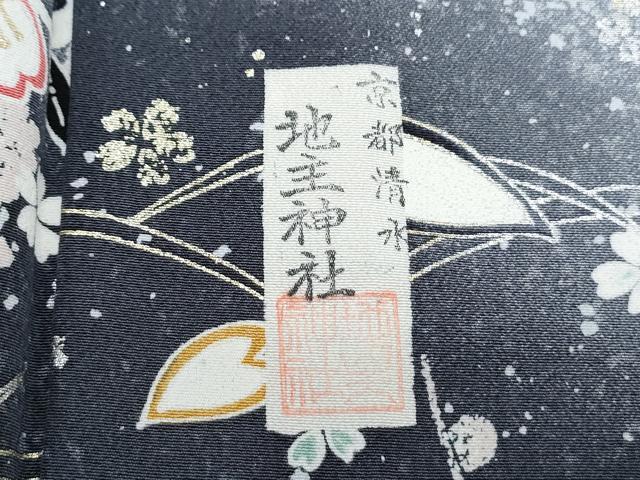 京都清水
地主神社